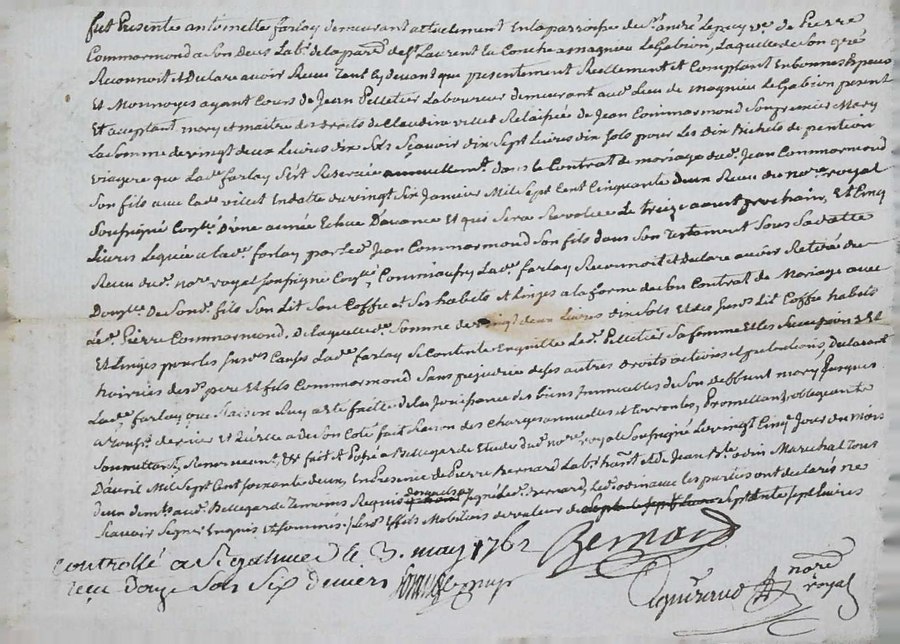 fut Presente antoinette farlay demeurant actuellement En la parroisse de St. andré Le puy ve. de Pierre
Commarmond a son deces Lab. de la parse. de St. Laurent la Conche a magnieu Le Gabion, Laquelle de son gré
Reconnoit et declare avoir Recu tant Cy devant que presentement Reellement et Comptant En bonnes Especes
Et Monnoyes ayant Cours de Jean Pelletier Laboureur demeurant aud. Lieu de magnieu Le Gabion present
Et acceptant mary et maitre des droits de Claudine villet Relaissée de Jean Commarmond Son premier Mary
La Somme de vingt deux Livres dix Sols Sçavoir dix Sept Livres dix Sols pour Les dix Bichets de pention
viagere que Lade. farlay S'est Reservée annuellemt. dans Le Contrat de mariage dud. Jean Commarmond
Son fils avec Lade. villet En datte du vingt Six Janvier Mil Sept Cent Cinquante deux Recu du nore. royal
Soussigné d'une année Echue D'avance Et qui Sera Revolue Le treize aout prochain, Et Cinq
Livres Leguée a Lade. farlay par led. Jean Commarmond Son fils dans Son Testament Sous Sa datte
Recu dud. nore. royal Soussigné, Comm'aussy Lade. farlay Reconnoit et declare avoir Retiré du
De Sond. fils Son Lit Son Coffre et Ses habits et Linges a la forme de Son Contrat de Mariage avec
Led. Pierre Commarmond. De laquelle de. Somme de vingt deux Livres dix Sols Et des Lit Coffre habits
Et Linges pour les Causes Lade. farlay Se Contente En quitte Led. Pelletier Sa femme Et les Succession Et
hoiries desd. pere Et fils Commarmond Sans prejudice de ses autres droits actions et pretentions, Declarant
Lade. farlay que Raison Luy a été faitte de la Jouissance des biens Immeubles de Son deffunt mary Jusques
a et qu'Elle a de Son Coté fait Raison des Charges annuelles et Promettant obligeants
Soumettants, Renonceant, fait Et Passé a Bellegarde Etude dud. nore. royal Soussigné Le vingt Cinq. Jour du mois
D'avril Mil Sept Cent Soixante deux, En Presence de Pierre Bernard Lab. et de Jean Odin Marechal tous
deux demts. aud. Bellegarde Temoins Requis signé Led. Bernard, Led. odin avec Les parties ont declaré ne
Scavoir Signer Enquis et Sommés. Effets Mobiliers de valeur de Septante Sept Livres
Controllé a St galmier le 3. may 1762
recu Douze Sols Six deniers
Bernard
nore.
royal